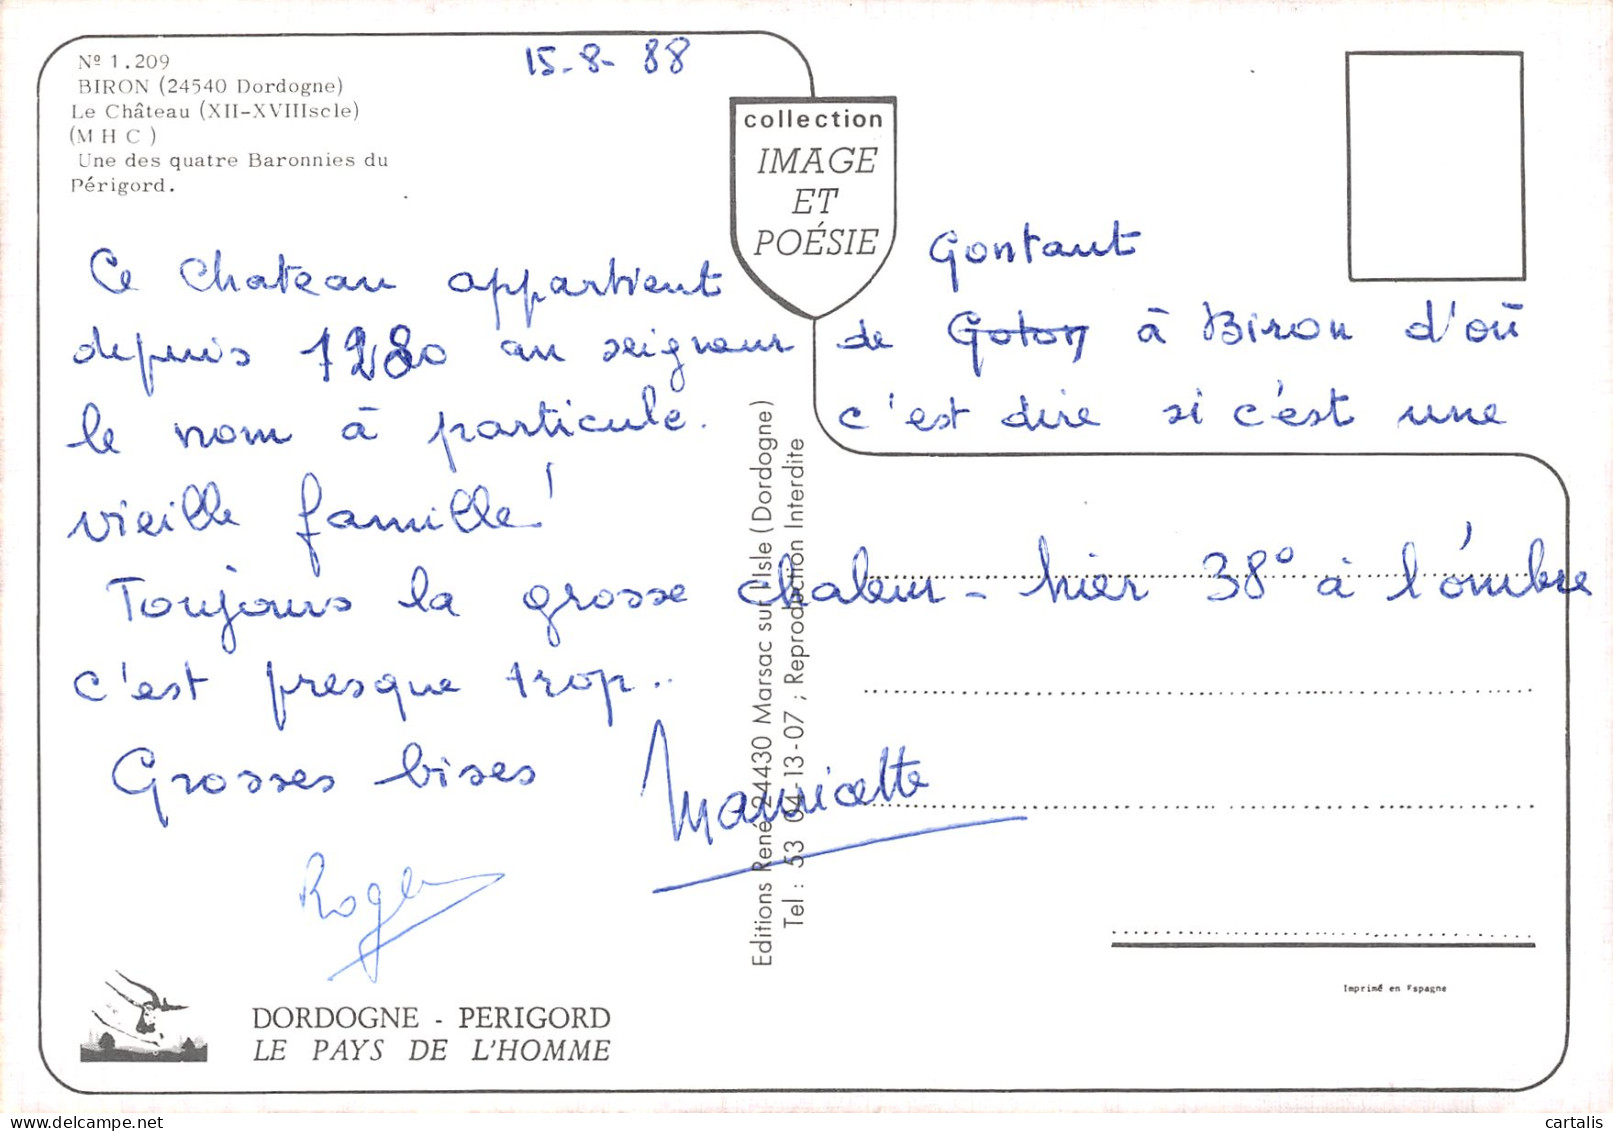 Nº 1.209
BIRON (24540 Dordogne)
Le Château (XII-XVIIIscle)
(M H C )
Une des quatre Baronnies du
Périgord.
15-8-88
collection
IMAGE
ET
POÉSIE
Gontaut
Ce chateau appartient
depuis 1280 au seigneur de Goton à Biron d'où
le nom à particule. c'est dire si c'est une
vieille famille!
Toujours la grosse chaleur - hier 38° à l'ombre
c'est presque trop..
Grosses bises Mauricette
Roger
Editions René 24430 Marsac sur l'Isle (Dordogne)
Tel : 53 04-13-07 ; Reproduction Interdite
Imprimé en Espagne
DORDOGNE - PERIGORD
LE PAYS DE L'HOMME
cartalis